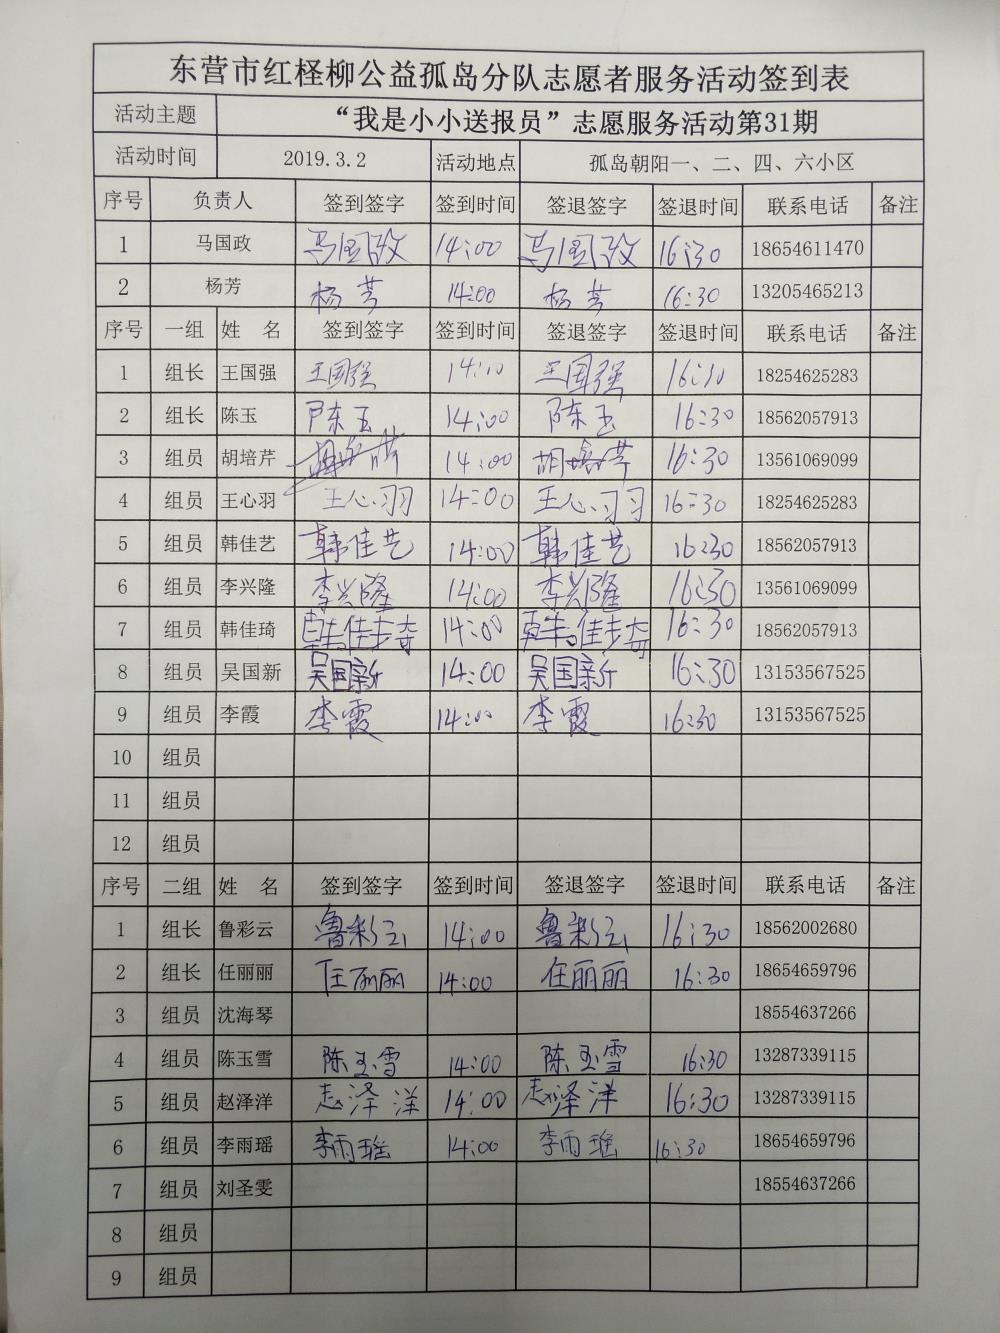 东营市红柽柳公益孤岛分队志愿者服务活动签到表
活动主题 “我是小小送报员”志愿服务活动第31期
活动时间 2019.3.2 活动地点 孤岛朝阳一、二、四、六小区
序号 负责人 签到签字 签到时间 签退签字 签退时间 联系电话 备注
1 马国政 马国政 14:00 马国政 16:30 18654611470
2 杨芳 杨芳 14:00 杨芳 16:30 13205465213
序号 一组 姓 名 签到签字 签到时间 签退签字 签退时间 联系电话 备注
1 组长 王国强 王国强 王国强 18254625283
2 组长 陈玉 陈玉 14:00 陈玉 16:30 18562057913
3 组员 胡培芹 14:00 胡培芹 16:30 13561069099
4 组员 王心羽 王心羽 14:00 王心羽 16:30 18254625283
5 组员 韩佳艺 韩佳艺 14:00 韩佳艺 16:30 18562057913
6 组员 李兴隆 李兴隆 14:00 李兴隆 16:30 13561069099
7 组员 韩佳琦 韩佳琦 14:00 韩佳琦 16:30 18562057913
8 组员 吴国新 吴国新 14:00 吴国新 16:30 13153567525
9 组员 李霞 李霞 14:00 李霞 16:30 13153567525
10 组员
11 组员
12 组员
序号 二组 姓 名 签到签字 签到时间 签退签字 签退时间 联系电话 备注
1 组长 鲁彩云 鲁彩云 14:00 鲁彩云 16:30 18562002680
2 组长 任丽丽 任丽丽 14:00 任丽丽 16:30 18654659796
3 组员 沈海琴 18554637266
4 组员 陈玉雪 陈玉雪 14:00 陈玉雪 16:30 13287339115
5 组员 赵泽洋 赵泽洋 14:00 赵泽洋 16:30 13287339115
6 组员 李雨瑶 李雨瑶 14:00 李雨瑶 16:30 18654659796
7 组员 刘圣雯 18554637266
8 组员
9 组员